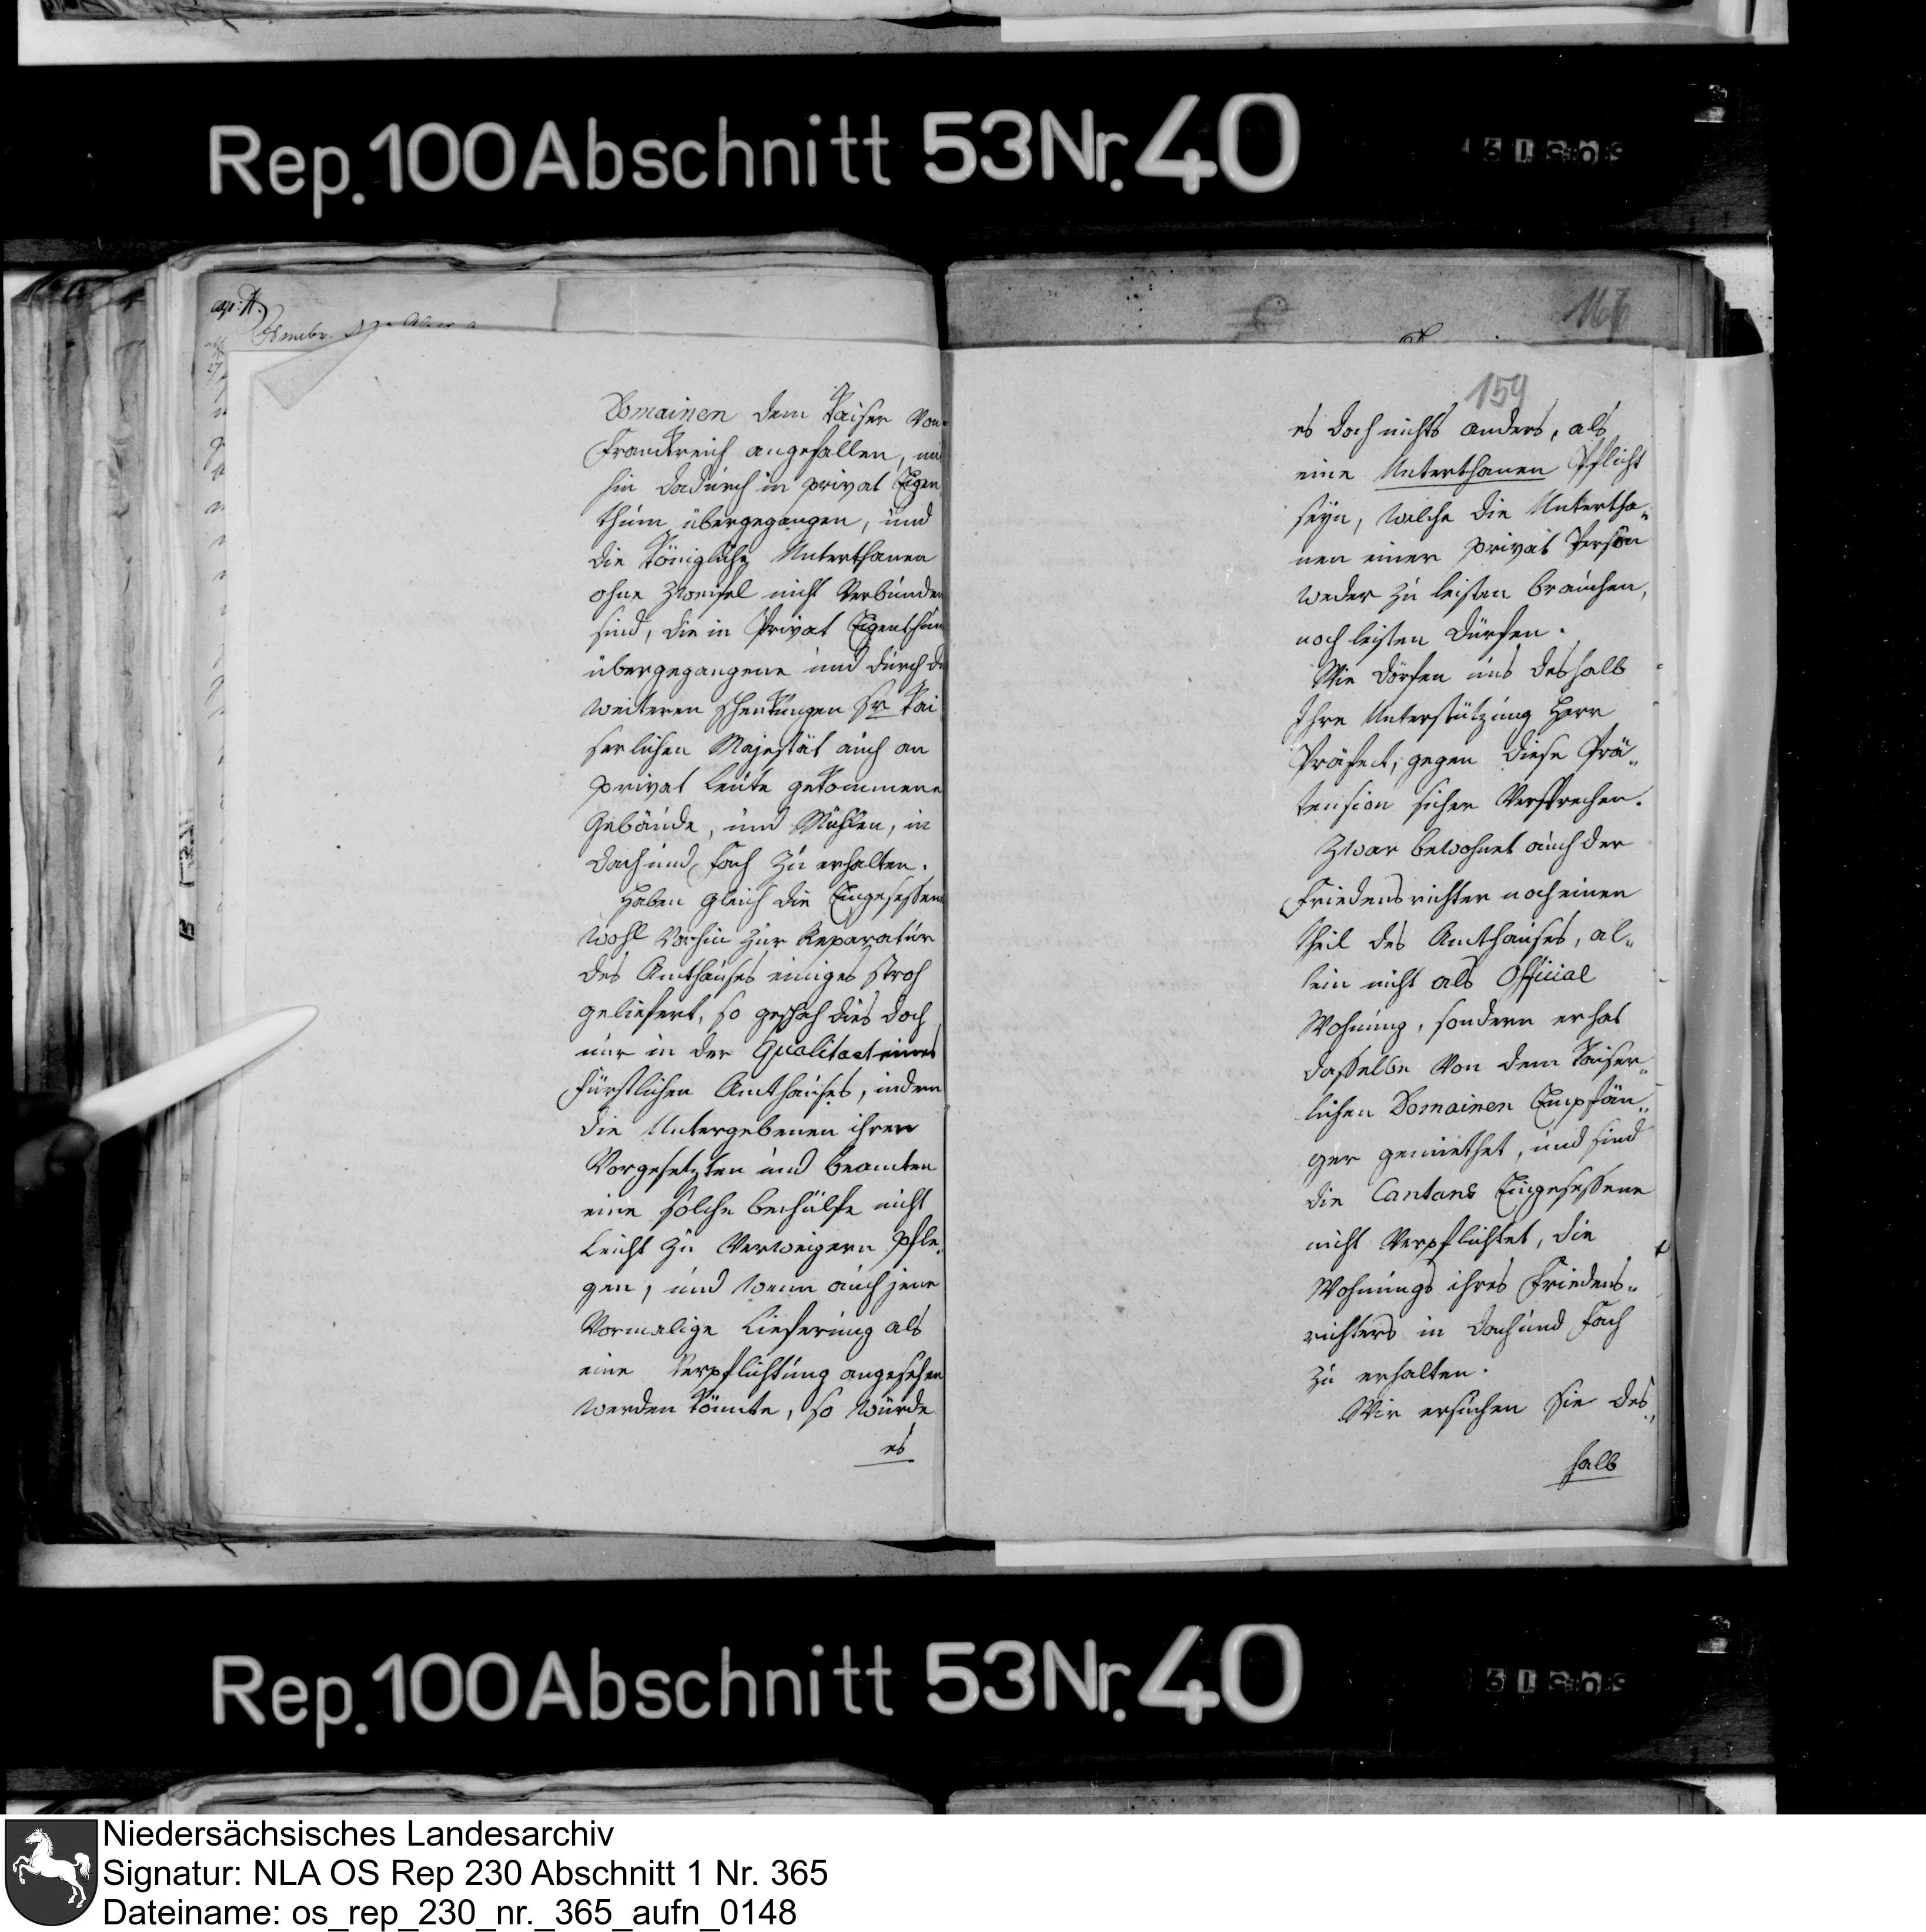 Rep. 100 Abschnitt 53 Nr. 40
Domainen dem Kaiser von
Franckreich angefallen, mit
hin dadurch in privat Eigen
thum übergegangen, und
die Königliche Unterthanen
ohne Zweifel nicht verbunden
sind, die in Privat Eigenthum
übergegangene und durch die
weiteren Schenkungen Sr Kai
serlichen Majestät auch an
privat Leute gekommene
Gebäude, und Mühlen, in
Dach und Fach zu erhalten.
Haben gleich die Eingesessene
wohl vorhin zur Reparatur
des Amthauses einiges Stroh
geliefert, so geschah dies doch
nur in der Qualitaet eines
Fürstlichen Amthauses, indem
die Untergebenen ihren
Vorgesetzten und Beamten
eine solche Beihülfe nicht
Leicht zu verweigern pfle„
gen, und wenn auch jene
Vormalige Lieferung als
eine Verpflichtung angesehen
werden könnte, so würde
es
166
159
es doch nichts anders, als
eine Unterthanen Pflicht
seyn, welche die Untertha„
nen einer privat Person
weder zu leisten brauchen,
noch leisten dürfen.
Wir dörfen uns deshalb
Ihre Unterstützung Herr
Präfect, gegen diese Prä„
tension sicher versprechen.
Zwar bewohnet auch der
Friedensrichter noch einen
theil des Amthauses, al„
lein nicht als Official
Wohnung, sondern er hat
dasselbe von dem Kaiser„
lichen Domainen Empfän„
ger gemiethet, und sind
die Cantons Eingesessene
nicht Verpflichtet, die
Wohnungs ihres Friedens„
richters in Dach und Fach
zu erhalten.
Wir ersuchen Sie des„
halb
Rep. 100 Abschnitt 53 Nr. 40
Niedersächsisches Landesarchiv
Signatur: NLA OS Rep 230 Abschnitt 1 Nr. 365
Dateiname: os_rep_230_nr._365_aufn_0148